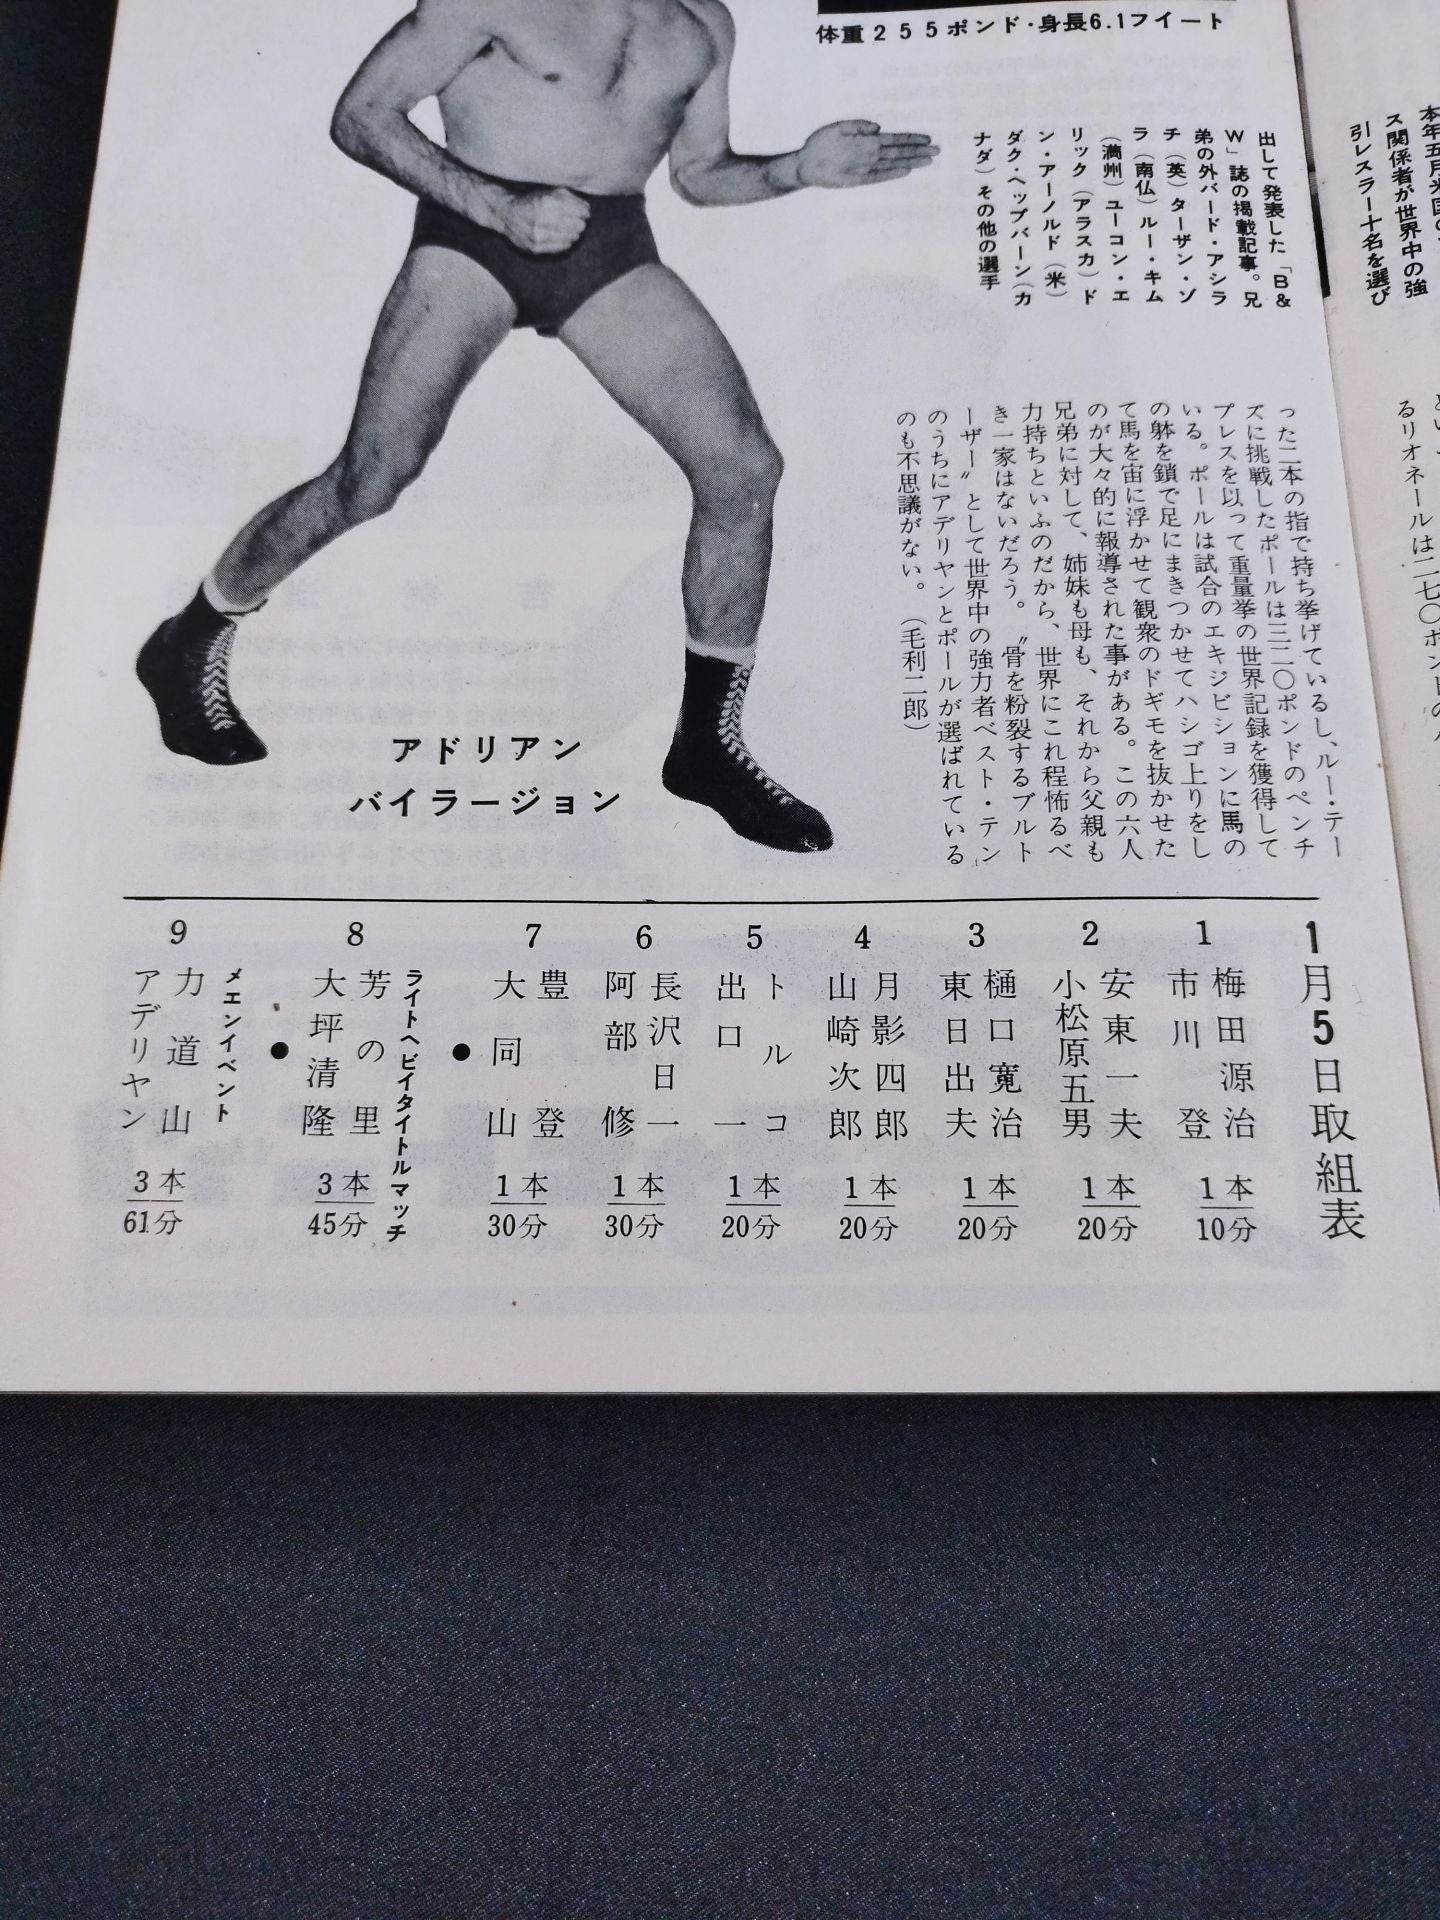 体重255ポンド・身長6.1フイート
本年五月米国の
ス関係者が世界中の強
引レスラー十名を選び
出して発表した「B&
W」誌の掲載記事。兄
弟の外バード・アシラ
チ(英)ターザン・ゾ
ラ(南仏)ルー・キム
(満州)ユーコン・エ
リック(アラスカ)ド
ン・アーノルド(米)
ダク・ヘップバーン(カ
ナダ)その他の選手
るリオネールは二七〇ポンドの
った二本の指で持ち挙げているし、ルー・テー
ズに挑戦したポールは三二〇ポンドのペンチ
プレスを以って重量挙の世界記録を獲得して
いる。ポールは試合のエキジビションに馬の
の躰を鎖で足にまきつかせてハシゴ上りをし
て馬を宙に浮かせて観衆のドギモを抜かせた
のが大々的に報導された事がある。この六人
兄弟に対して、姉妹も母も、それから父親も
力持ちといふのだから、世界にこれ程怖るべ
き一家はないだろう。〝骨を粉裂するブルト
ーザー〟として世界中の強力者ベスト・テン
のうちにアデリヤンとポールが選ばれている
のも不思議がない。(毛利二郎)
アドリアン
バイラージョン
1月5日取組表
1
梅田源治
市川登
1本
10分
2
安東一夫
小松原五男
1本
20分
3
樋口寛治
東日出夫
1本
20分
4
月影四郎
山崎次郎
1本
20分
5
トルコ
出口一
1本
20分
6
長沢日一
阿部修
1本
30分
7
豊登
大同山
1本
30分
●
ライトヘビイタイトルマッチ
8
芳の里
大坪清隆
3本
45分
●
メエンイベント
9
力道山
アデリヤン
3本
61分